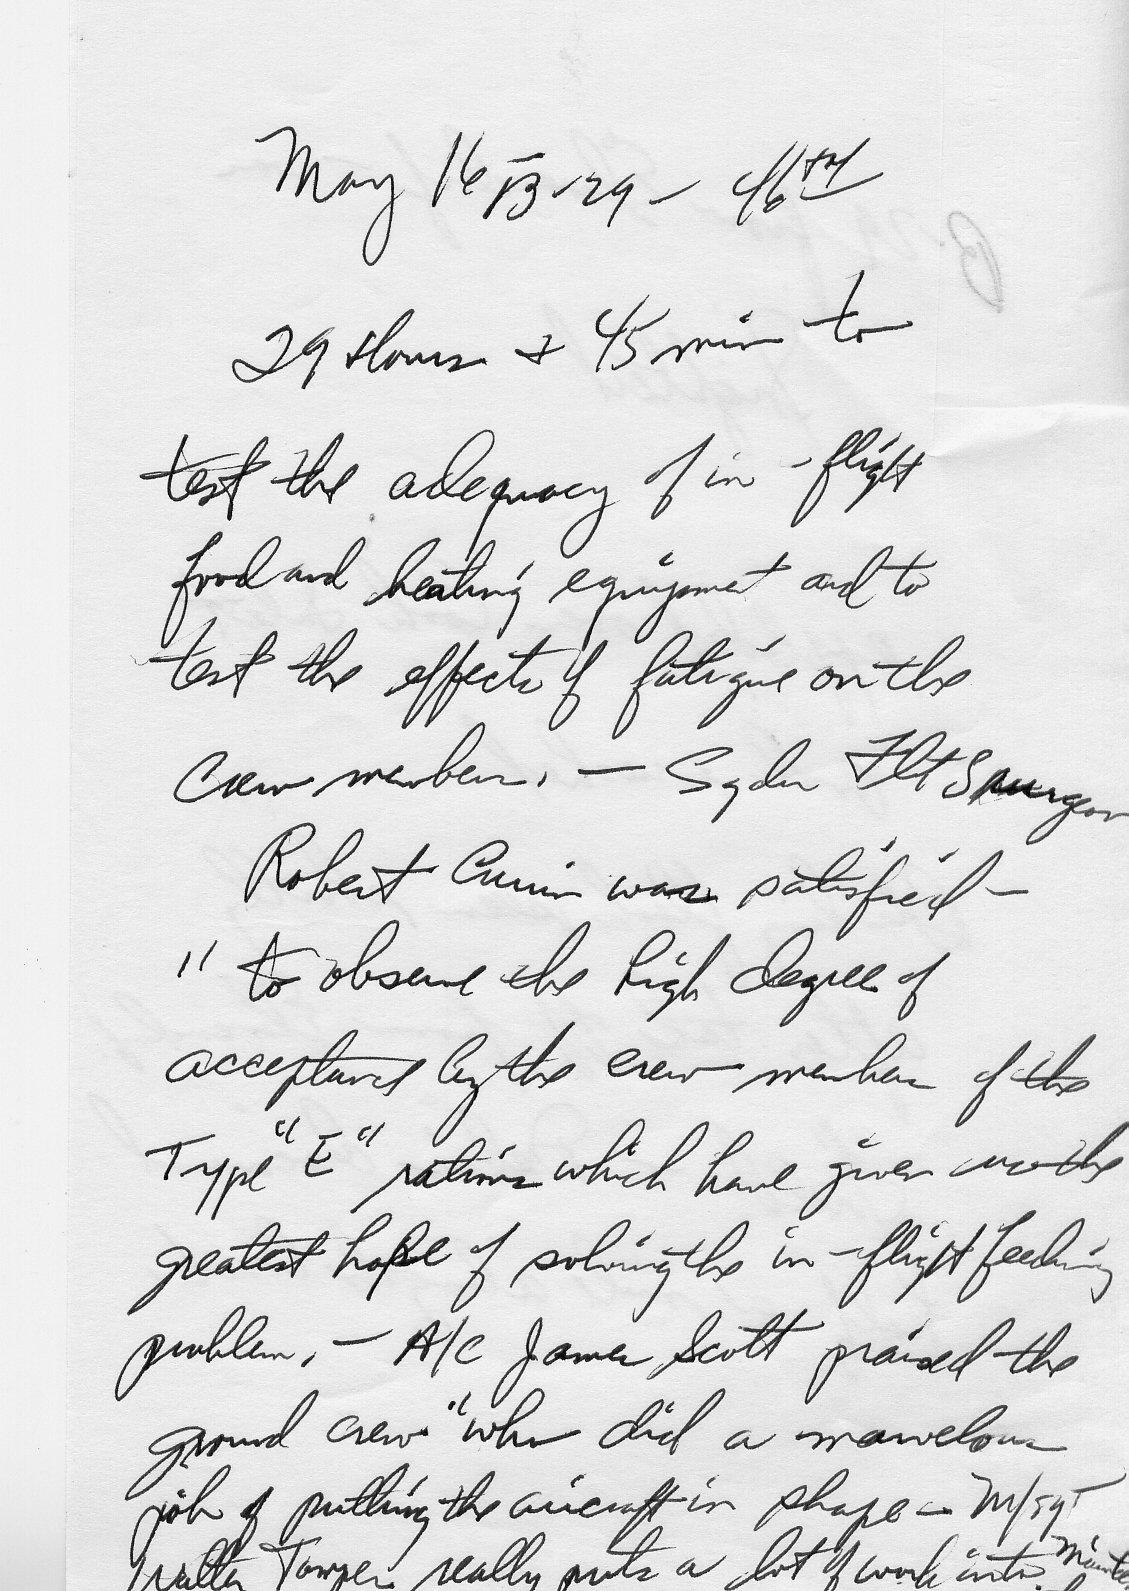 May 16 B-29 - 46TH
29 Hours + 45 min to
test the adequacy of in-flight
food and heating equipment and to
test the effects of fatigue on the
crew members. - Flt Surgeon
Robert was satisfied -
" to observe the high degree of
acceptance by the crew members of the
Type "E" rations which have given us the
greatest hope of solving the in-flight feeding
problem. - A/C James Scott praised the
ground crew "who did a marvelous
job of putting the aircraft in shape - M/SGT
Walter really puts a lot of work into